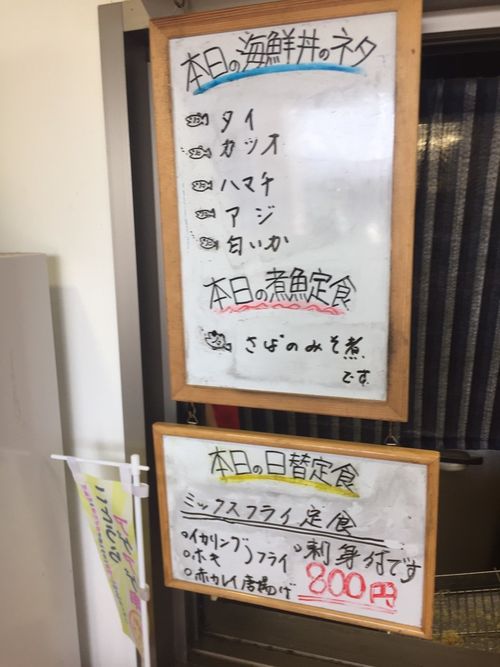 本日の海鮮丼のネタ
タイ
カツオ
ハマチ
アジ
匂いか
本日の煮魚定食
さばのみそ煮
です
本日の日替定食
ミックスフライ定食
○イカリング
○ホキ
)フライ
○赤カレイ唐揚げ
○刺身付です
800円